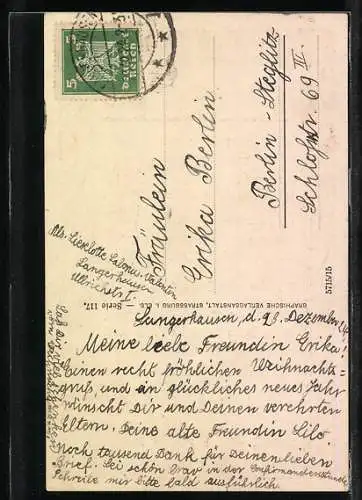 5 5
Deutsches
Reich
Fräulein
Erika Berlin
Berlin-Steglitz
Schloßstr 69 III.
Abs. Lieselotte
Sangerhausen
Ulrichstr.
GRAPHISCHE VERLAGSANSTALT, STRASSBURG I. ELS. — Serie 117.
5715/15
Sangerhausen, d. 23. Dezember
Meine liebe Freundin Erika!
Einen recht fröhlichen Weihnachts-
gruß, und ein glückliches neues Jahr
wünscht Dir und Deinen verehrten
Eltern, Deine alte Freundin Lilo.
noch tausend Dank für Deinen lieben
Brief. Sei schön brav in der Konfirmandenstunde
Schreibe mir bitte bald ausführlich.